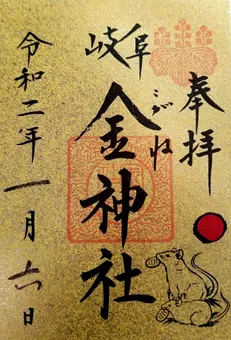 奉拝
岐阜
金神社
こがね
令和二年一月六日